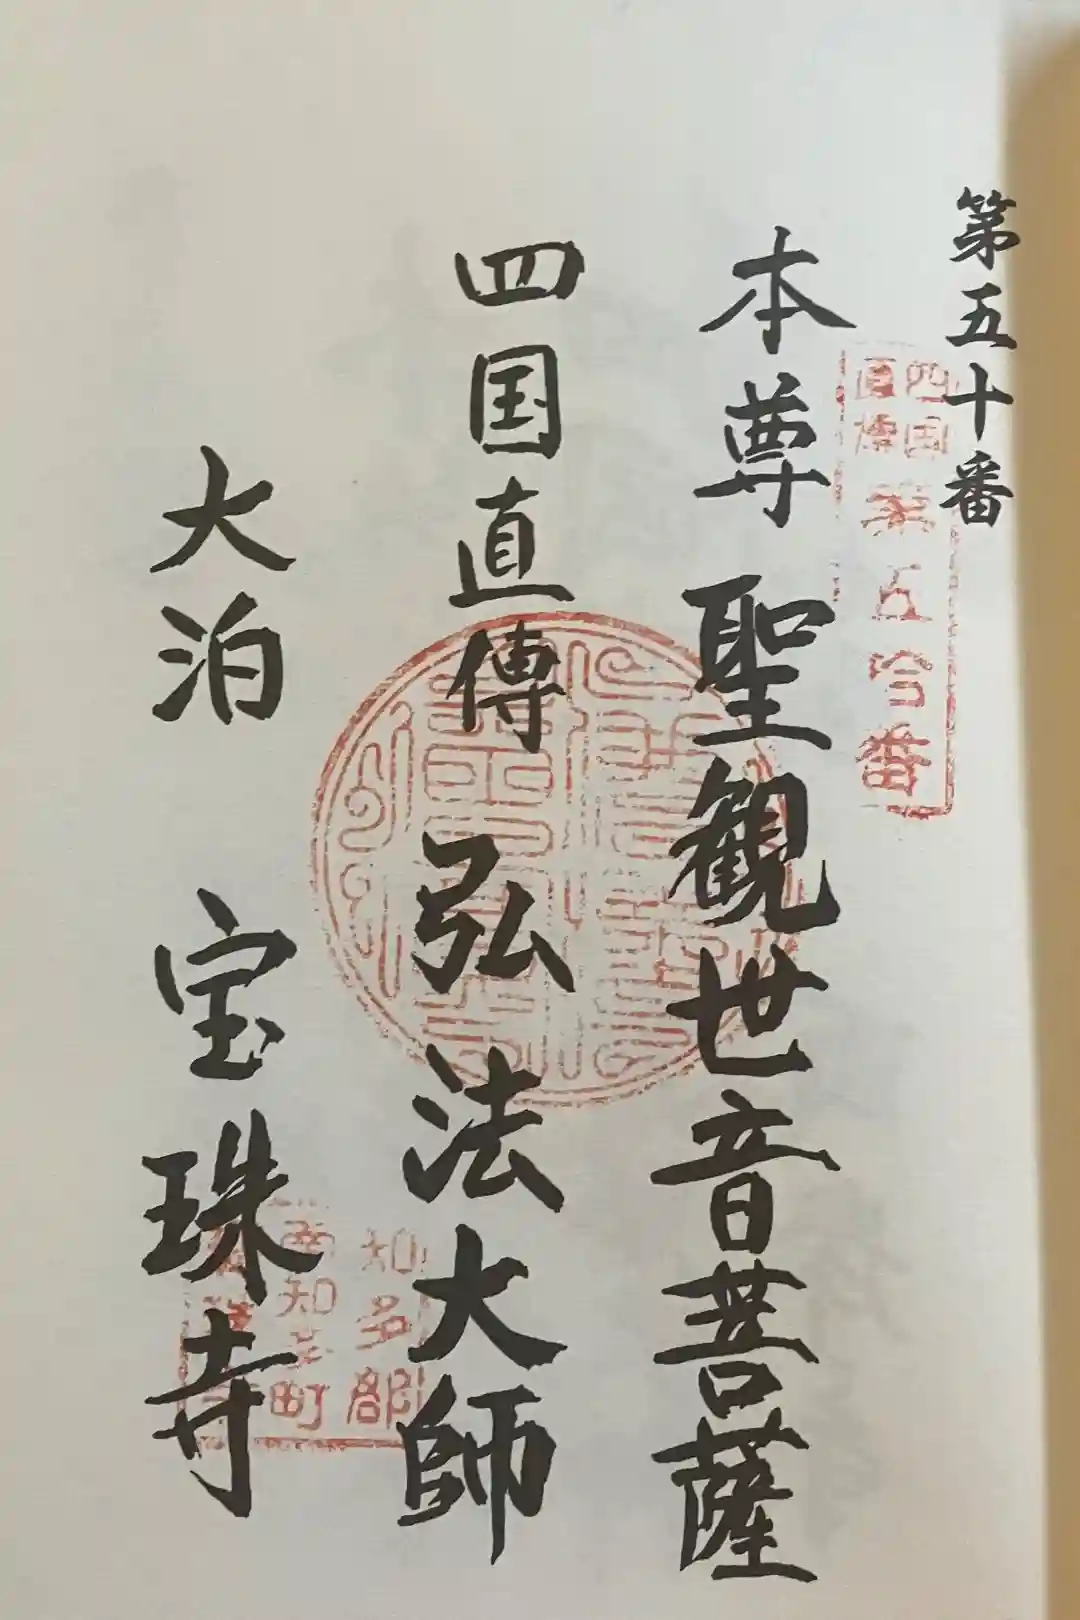 第五十番
本尊 聖観世音菩薩
四国直傳 弘法大師
大泊 宝珠寺
四国
直傳
第五拾番
知多郡
南知多町